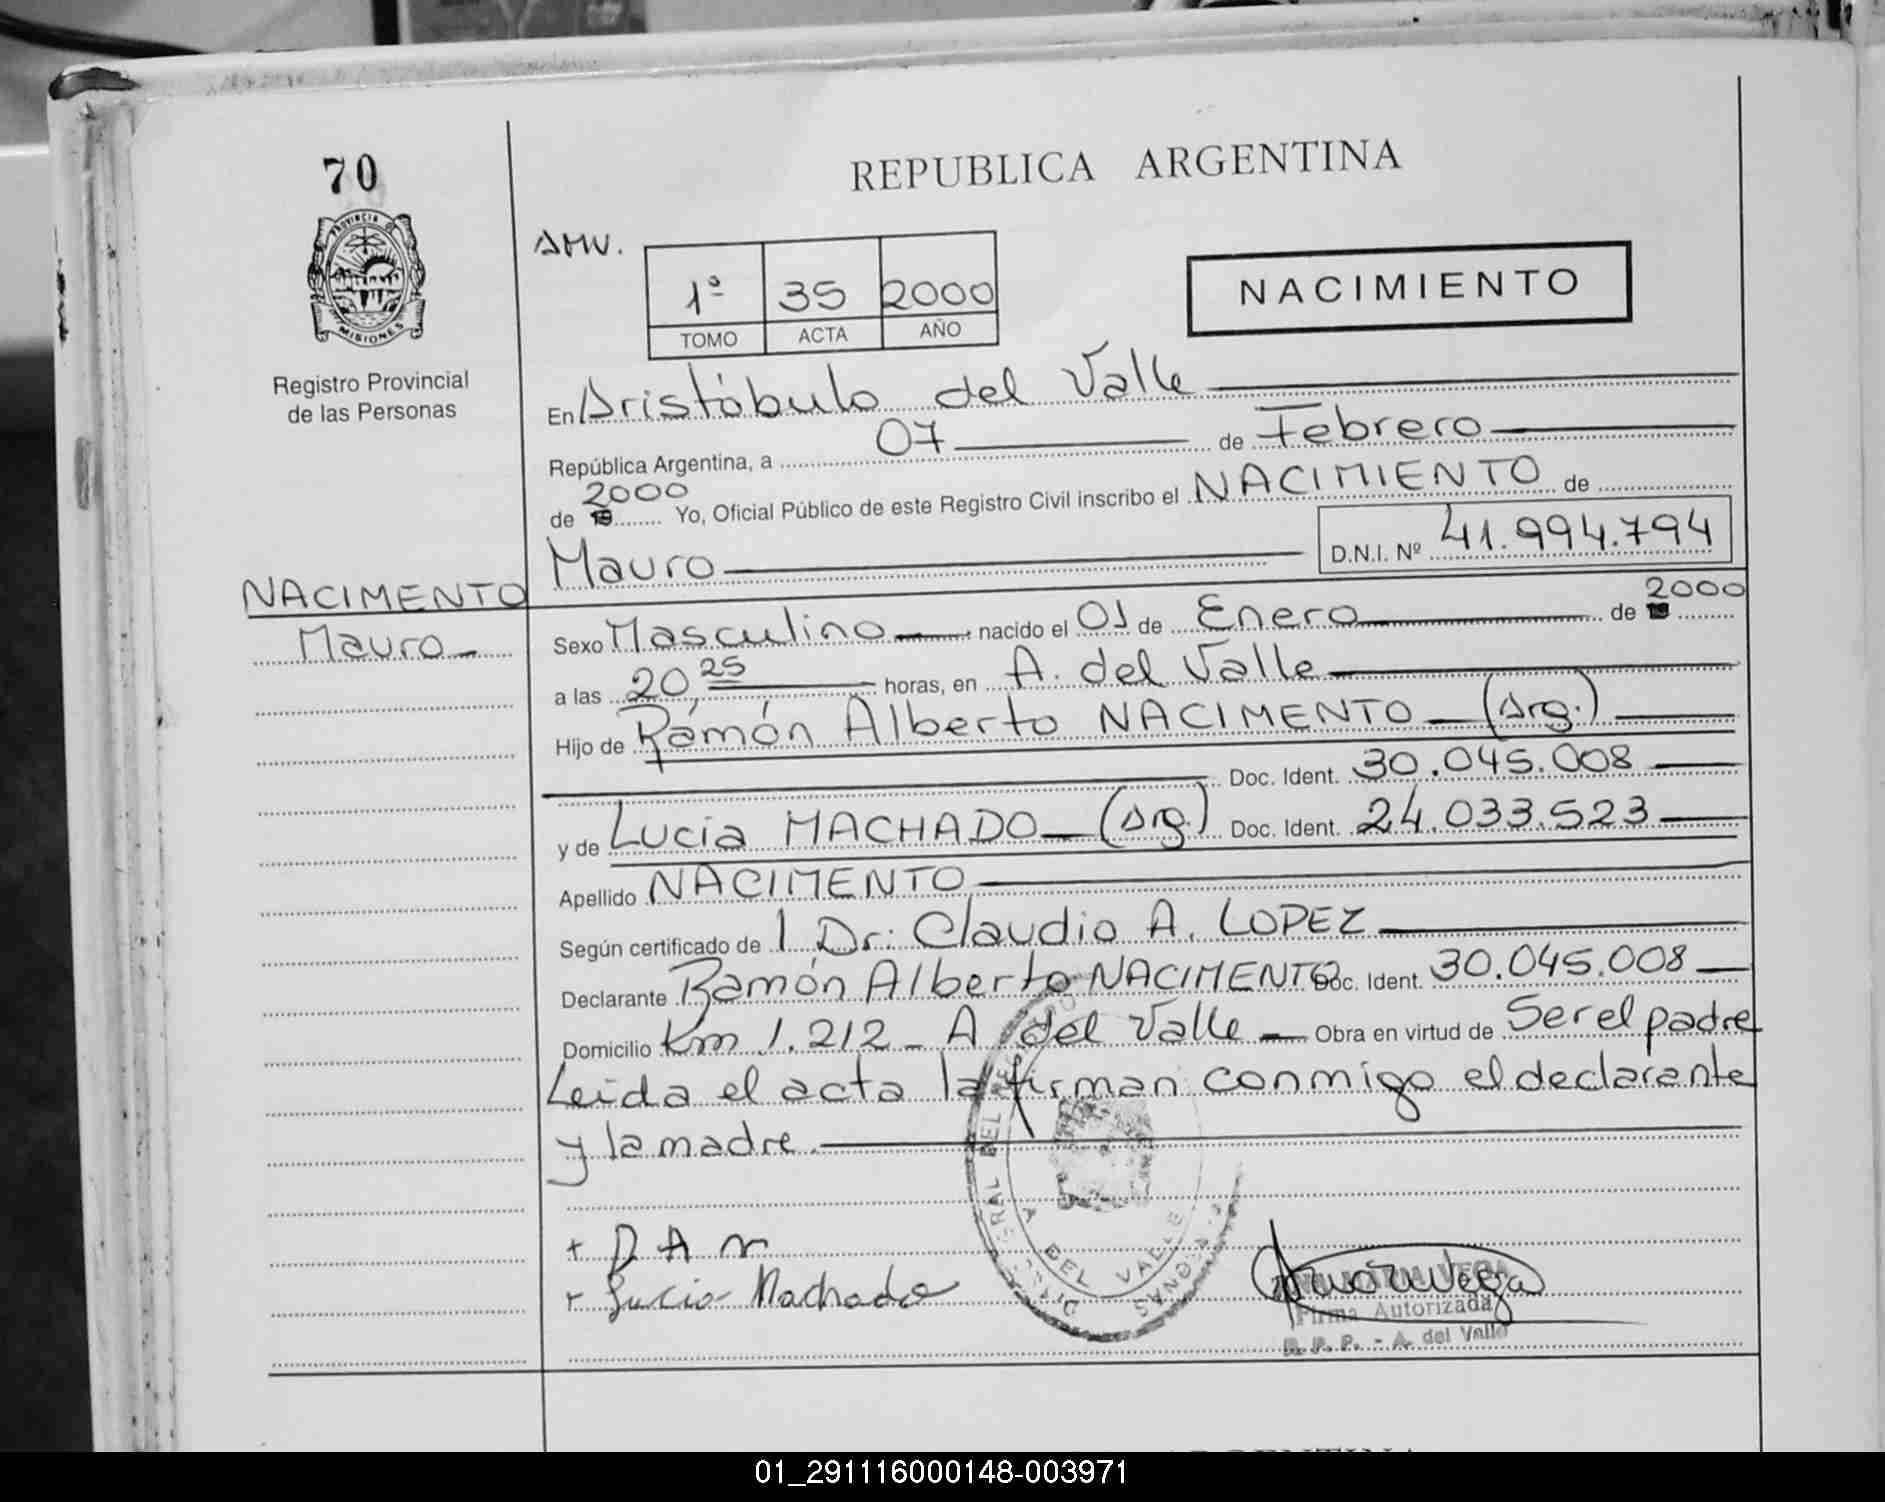 70
REPUBLICA ARGENTINA
PROVINCIA DE MISIONES
AMV.
1ª 35 2000
TOMO ACTA AÑO
NACIMIENTO
Registro Provincial
de las Personas
En Aristóbulo del Valle
República Argentina, a 07 de Febrero
2000
de 19 Yo, Oficial Público de este Registro Civil inscribo el NACIMIENTO de
Mauro D.N.I. Nº 41.994.794
NACIMENTO
Mauro
2000
Sexo Masculino nacido el 01 de Enero de 19
a las 20,25 horas, en A. del Valle
Hijo de Ramón Alberto NACIMENTO (Arg.)
Doc. Ident. 30.045.008
y de Lucia MACHADO (Arg.) Doc. Ident. 24.033.523
Apellido NACIMENTO
Según certificado de 1 Dr. Claudio A. LOPEZ
Declarante Ramón Alberto NACIMENTO Doc. Ident. 30.045.008
Domicilio Km 1.212 - A del Valle Obra en virtud de Ser el padre
Leida el acta la firman conmigo el declarante
y la madre.
+ D A N
+ Lucia Machado
DEL VALLE
VEGA
Firma Autorizada
R. P. P. - A. del Valle
01_291116000148-003971